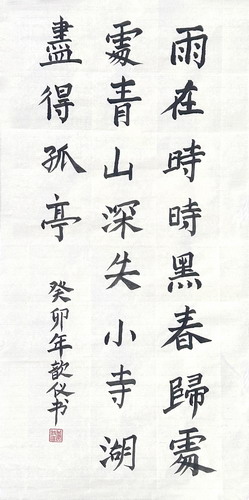 雨在時時黑春歸處
處青山深失小寺湖
盡得孤亭
癸卯年歆仪书